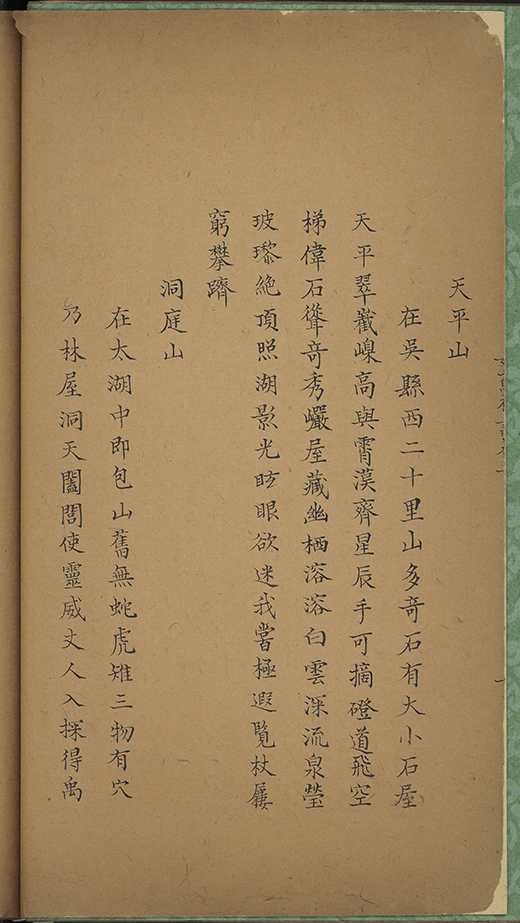 天平山
在吳縣西二十里山多奇石有大小石屋
天平翠巀嵲高與霄漢齊星辰手可摘磴道飛空
梯偉石聳奇秀巗屋藏幽栖溶溶白雲深流泉瑩
玻瓈絶頂照湖影光眩眼欲迷我嘗極遐覽杖屨
窮攀躋
洞庭山
在太湖中即包山舊無蛇虎雉三物有穴
乃林屋洞天闔閭使靈威丈人入探得禹